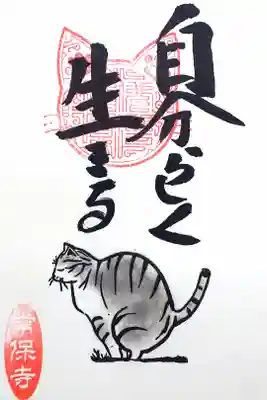 自分らしく
生きる
常保寺